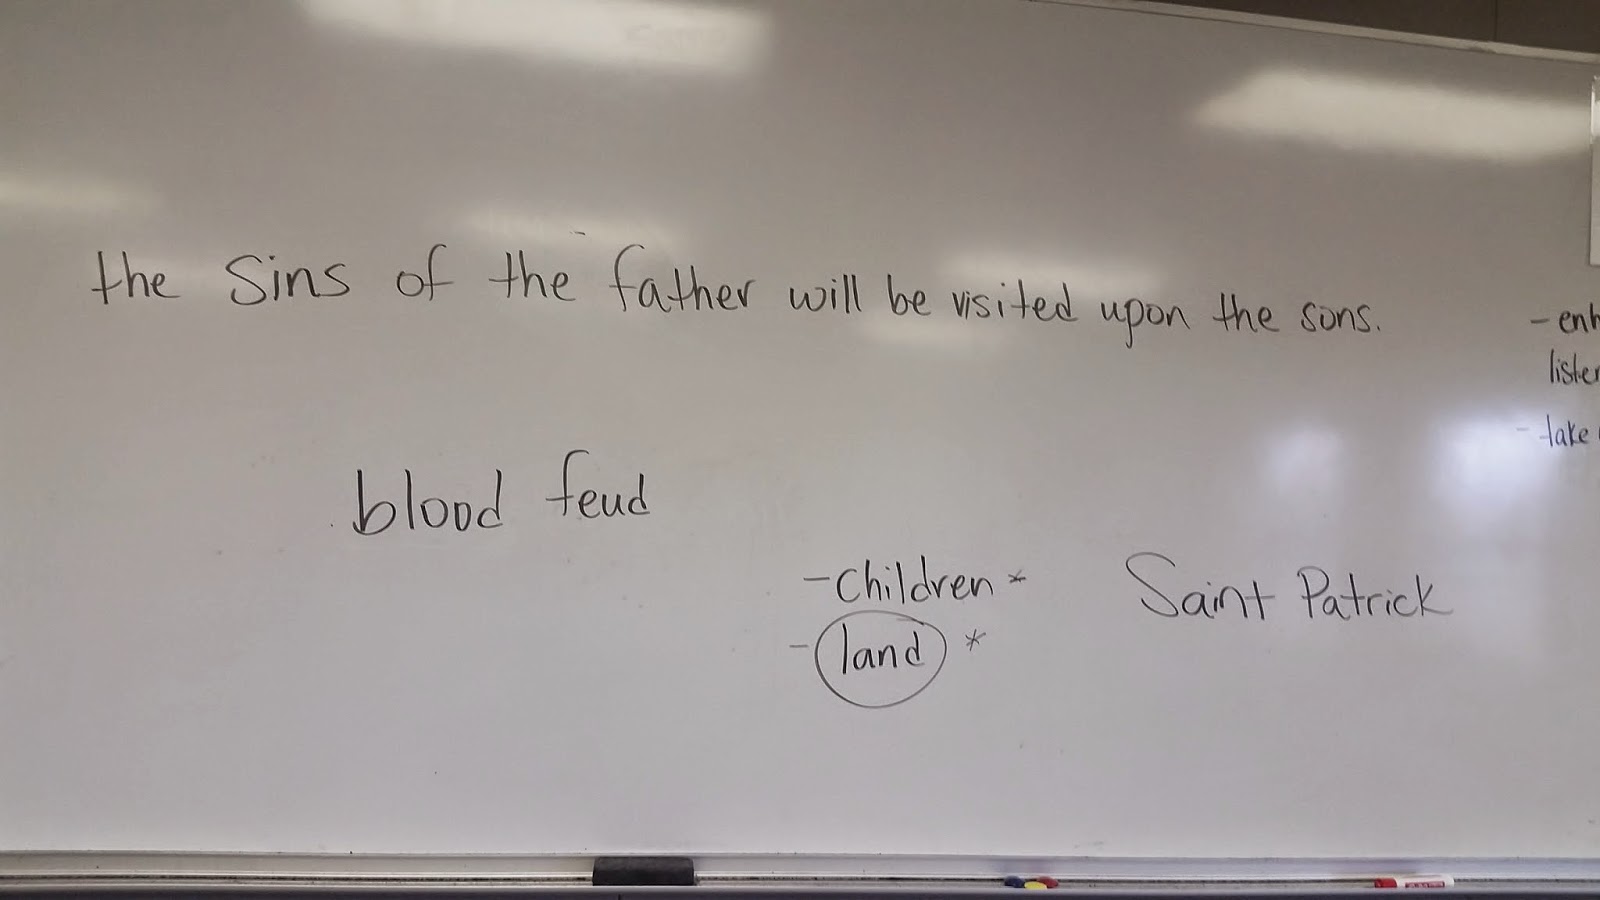 the Sins of the father will be visited upon the sons.
blood feud
- Children *
- land *
Saint Patrick
- enh
listen
- take